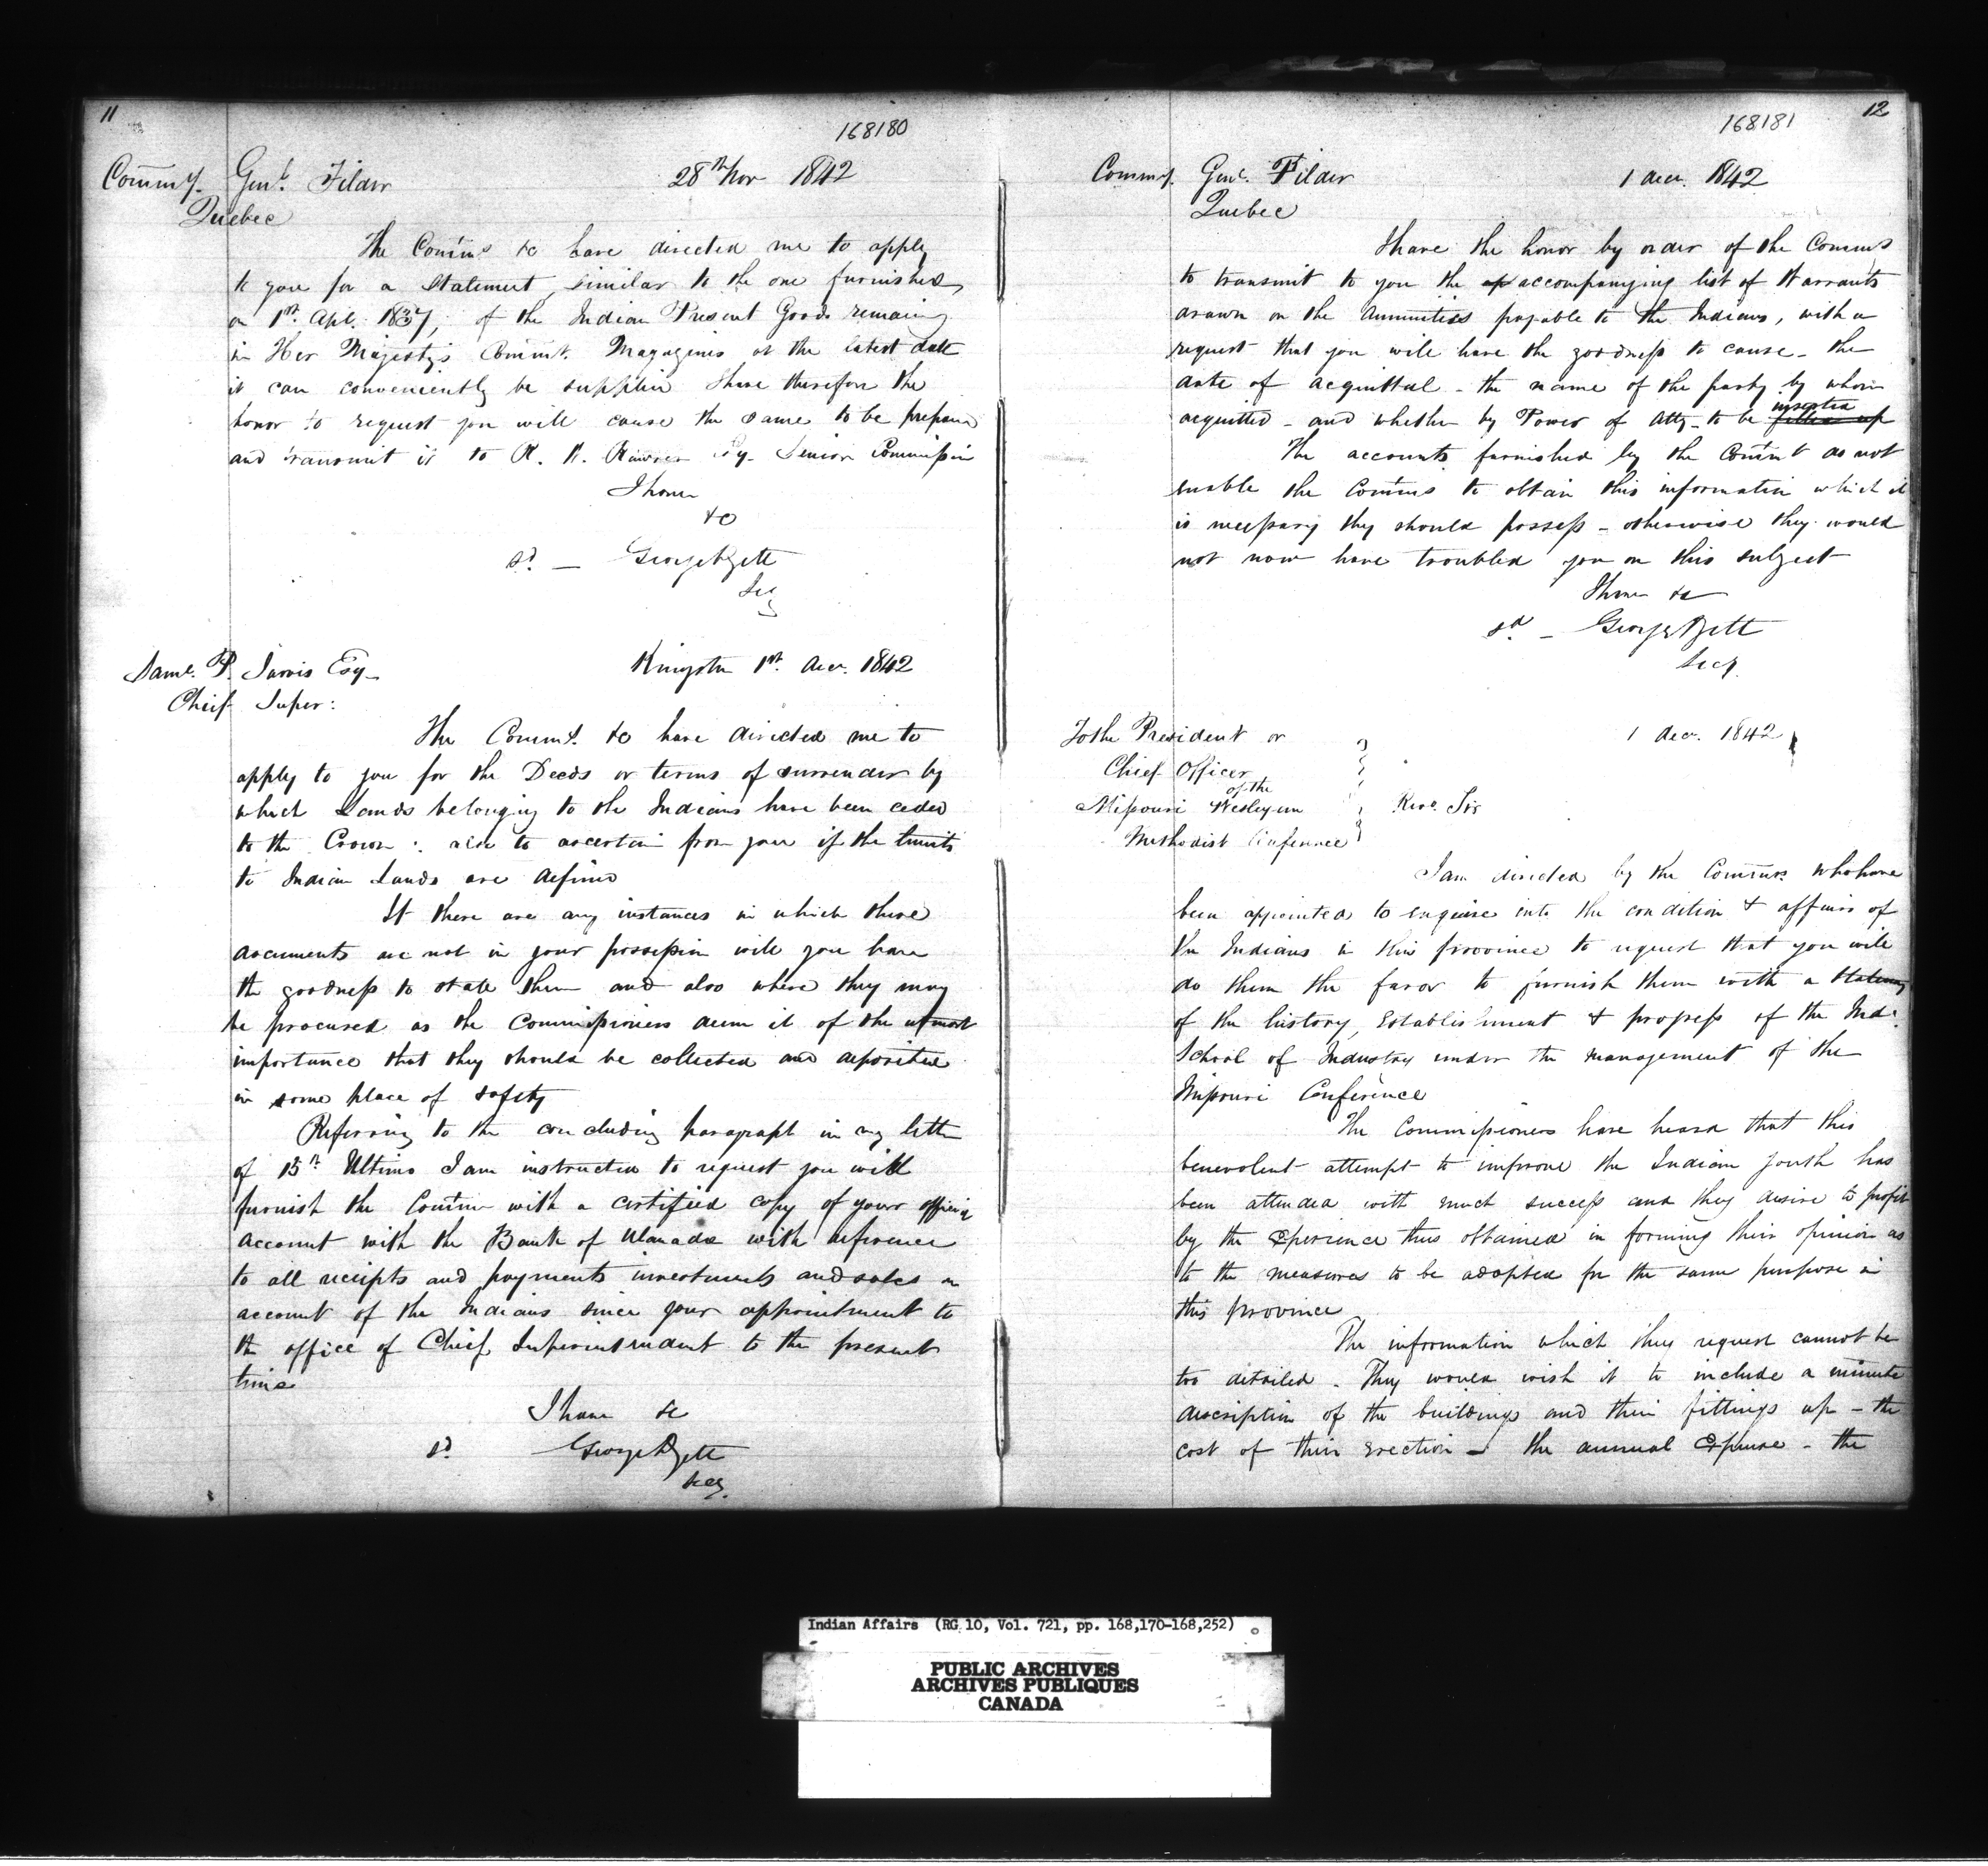 11
168180
Commy. Genl. Filder 28th Nov 1842
Quebec
The Comms &c have directed me to apply
to you for a Statement, similar to the one furnished
on 1st. Apl. 1837, of the Indian Present Goods remaing
in Her Majesty's Commt. Magazines at the latest date
it can conveniently be supplied I have therefore the
honor to request you will cause the same to be prepared
and transmit it to R. W. Rawson Esq. Senior Commission
I have
&c
sd. — George
Secy
Saml. P. Jarvis Esq. Kingston 1st. Decr. 1842
Chief Super:
The Comms. &c have directed me to
apply to you for the Deeds or terms of surrender by
which Lands belonging to the Indians have been ceded
to the Crown: also to ascertain from you if the limits
to Indian Lands are defined
If there are any instances in which these
documents are not in your possession will you have
the goodness to state them and also where they may
be procured as the Commissioners deem it of the utmost
importance that they should be collected and deposited
in some place of safety
Referring to the concluding paragraph in my letter
of 15th Ultimo I am instructed to request you will
furnish the Comms with a certified copy of your official
account with the Bank of U Canada with reference
to all receipts and payments investments and sales on
account of the Indians since your appointment to
the office of Chief Superintendent to the present
time
I have &c
sd. George
Secy.
168181
12
Commy. Genl. Filder 1 Decr. 1842
Quebec
I have the honor by order of the Comms
to transmit to you the ap accompanying list of Warrants
drawn on the Annuities payable to the Indians, with a
request that you will have the goodness to cause - the
date of acquittal - the name of the party by whom
acquitted - and whether by Power of Atty - to be filled up inserted
The accounts furnished by the Commt do not
enable the Comms to obtain this information which it
is necessary they should possess - otherwise they would
not now have troubled you on this subject
I have &c
sd — George
Secy.
To the President or 1 Decr. 1842
Chief Officer
of the
Missouri Wesleyan Revd. Sir
Methodist Conference
I am directed by the Comms. who have
been appointed to enquire into the condition & affairs of
the Indians in this province to request that you will
do them the favor to furnish them with a Statemt
of the history, Establishment & progress of the Indn.
School of Industry under the management of the
Missouri Conference
The Commissioners have heard that this
benevolent attempt to improve the Indian youth has
been attended with much success and they desire to profit
by the Experience thus obtained in forming their opinion as
to the measures to be adopted for the same purpose in
this province
The information which they request cannot be
too detailed. They would wish it to include a minute
description of the buildings and their fittings up - the
cost of their Erection - the annual Expense - the
Indian Affairs (RG 10, Vol. 721, pp. 168,170-168,252)
PUBLIC ARCHIVES
ARCHIVES PUBLIQUES
CANADA